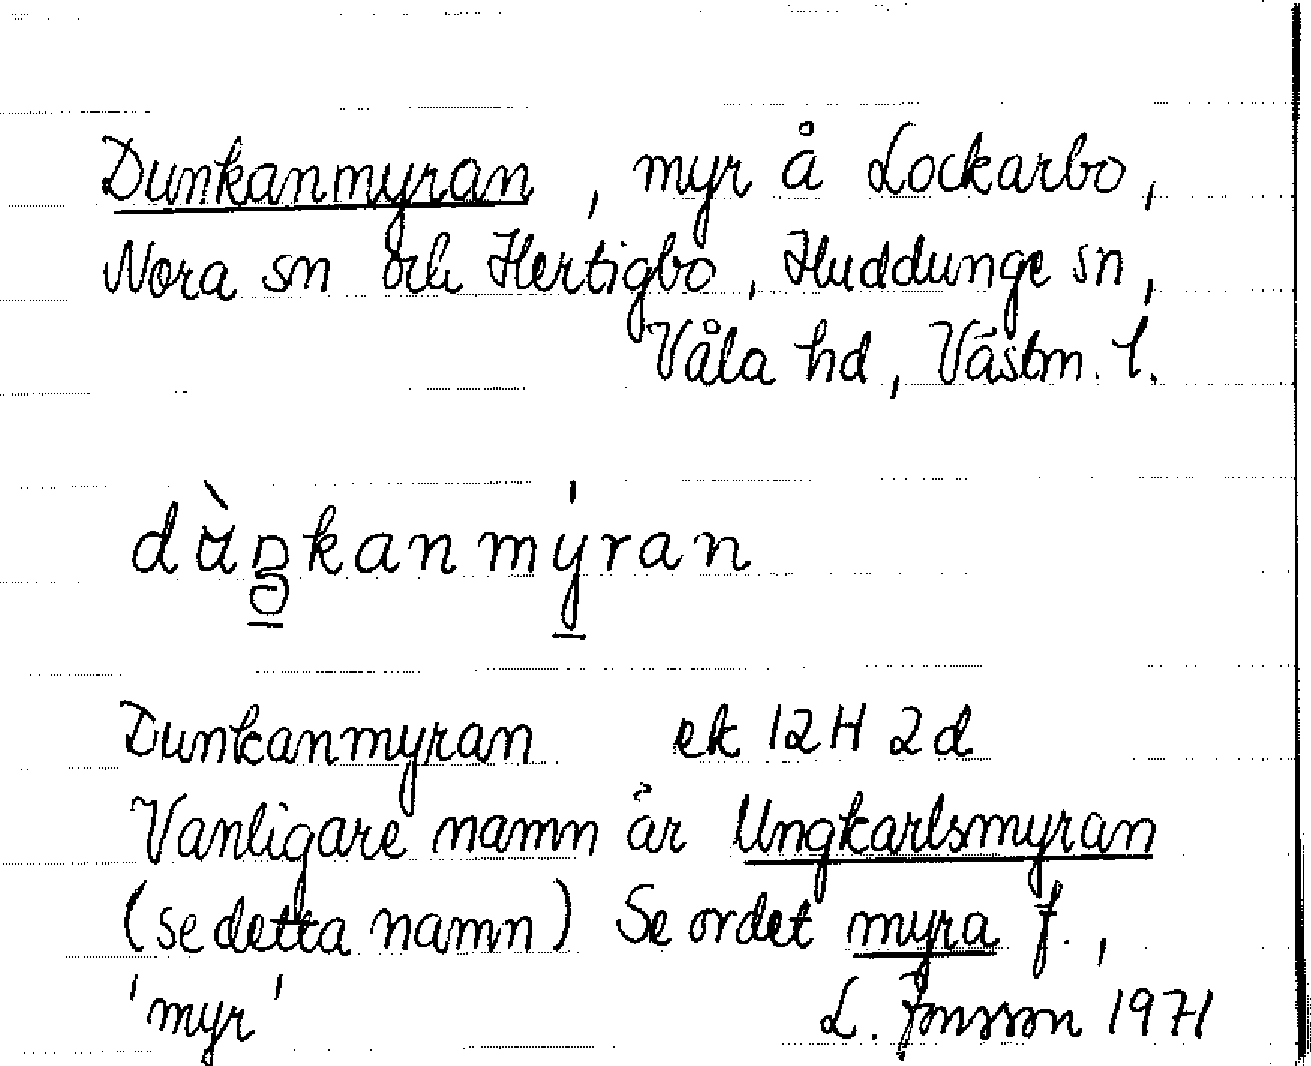 Dunkanmyran, myr å Lockarbo,
Nora sn och Hertigbo, Huddunge sn,
Våla hd, Västm. l.
dùŋkanmýran
Dunkanmyran ek 12H 2d
Vanligare namn är Ungkarlsmyran
(se detta namn) Se ordet myra f.,
'myr' L. Jonsson 1971